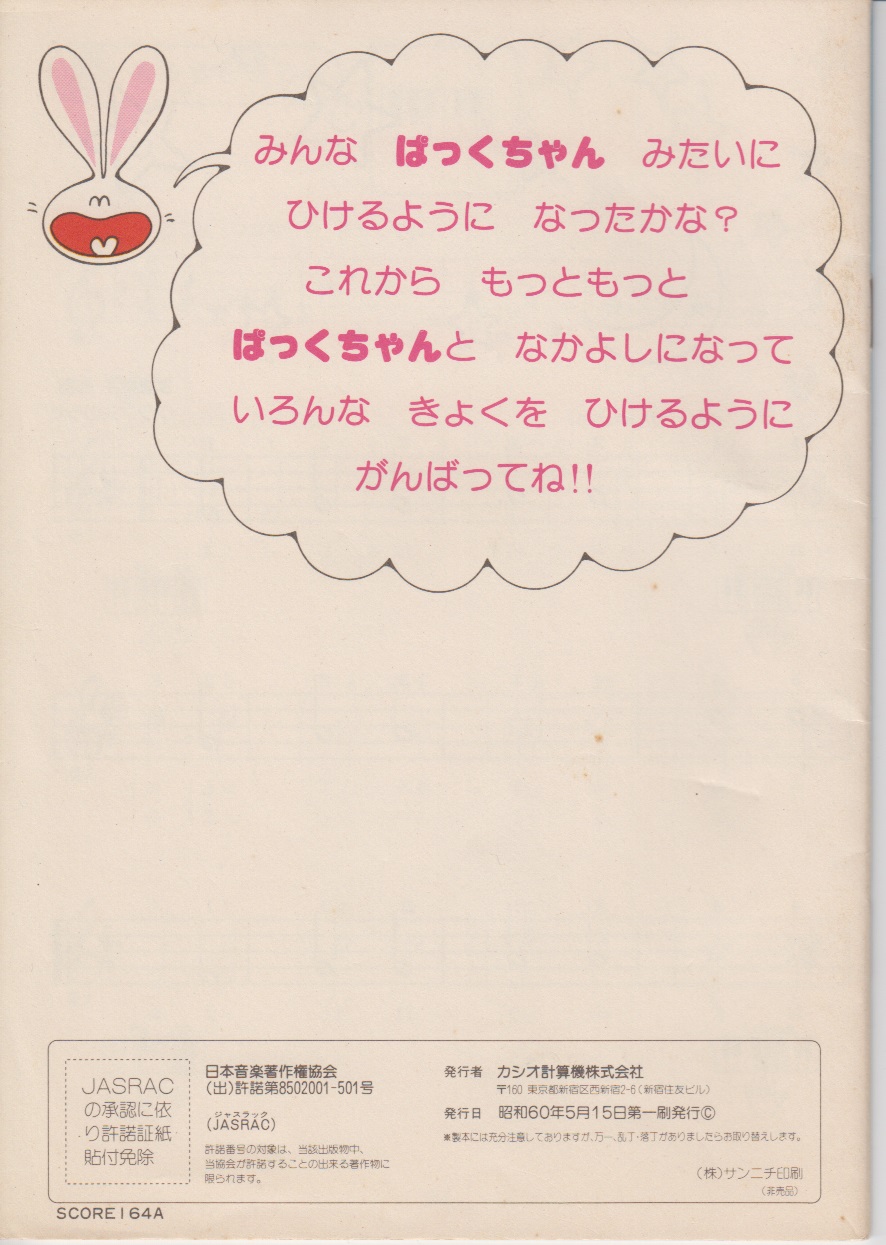 みんな　ぱっくちゃん　みたいに
ひけるように　なったかな？
これから　もっともっと
ぱっくちゃんと　なかよしになって
いろんな　きょくを　ひけるように
がんばってね!!
JASRAC
の承認に依
り許諾証紙
貼付免除
日本音楽著作権協会
(出)許諾第8502001-501号
ジャスラック
(JASRAC)
許諾番号の対象は、当該出版物中、
当協会が許諾することの出来る著作物に
限られます。
発行者　カシオ計算機株式会社
〒160 東京都新宿区西新宿2-6(新宿住友ビル)
発行日　昭和60年5月15日第一刷発行©
※製本には充分注意しておりますが、万一、乱丁・落丁がありましたらお取り替えします。
(株)サンニチ印刷
(非売品)
SCORE164A